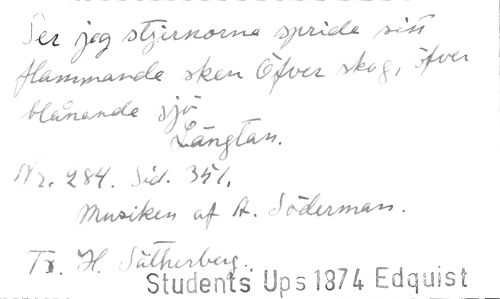 Ser jag stjernorna sprida sitt
flammande sken Öfver skog, öfver
blånande sjö
Längtan.
Nr. 284. Sid. 351.
Musiken af A. Söderman.
Tx. H. Sätherberg.
Students Ups 1874 Edquist